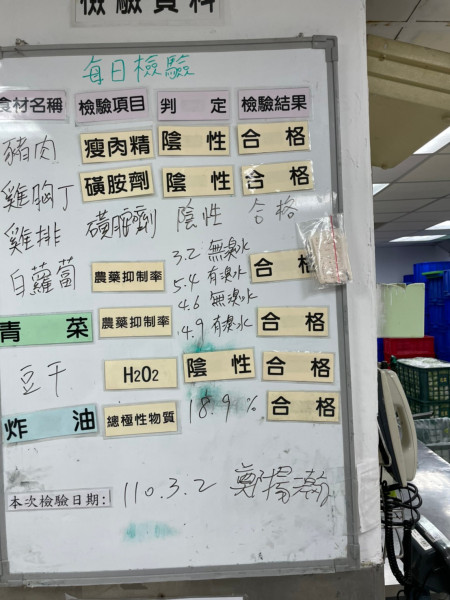 檢驗資料
每日檢驗
食材名稱 檢驗項目 判定 檢驗結果
豬肉 瘦肉精 陰性 合格
雞胸丁 磺胺劑 陰性 合格
雞排 磺胺劑 陰性 合格
白蘿蔔 農藥抑制率 3.2 無臭水 5.4 有臭水 合格
青菜 農藥抑制率 4.6 無臭水 4.9 有臭水 合格
豆干 H2O2 陰性 合格
炸油 總極性物質 18.9% 合格
本次檢驗日期: 110.3.2 鄭